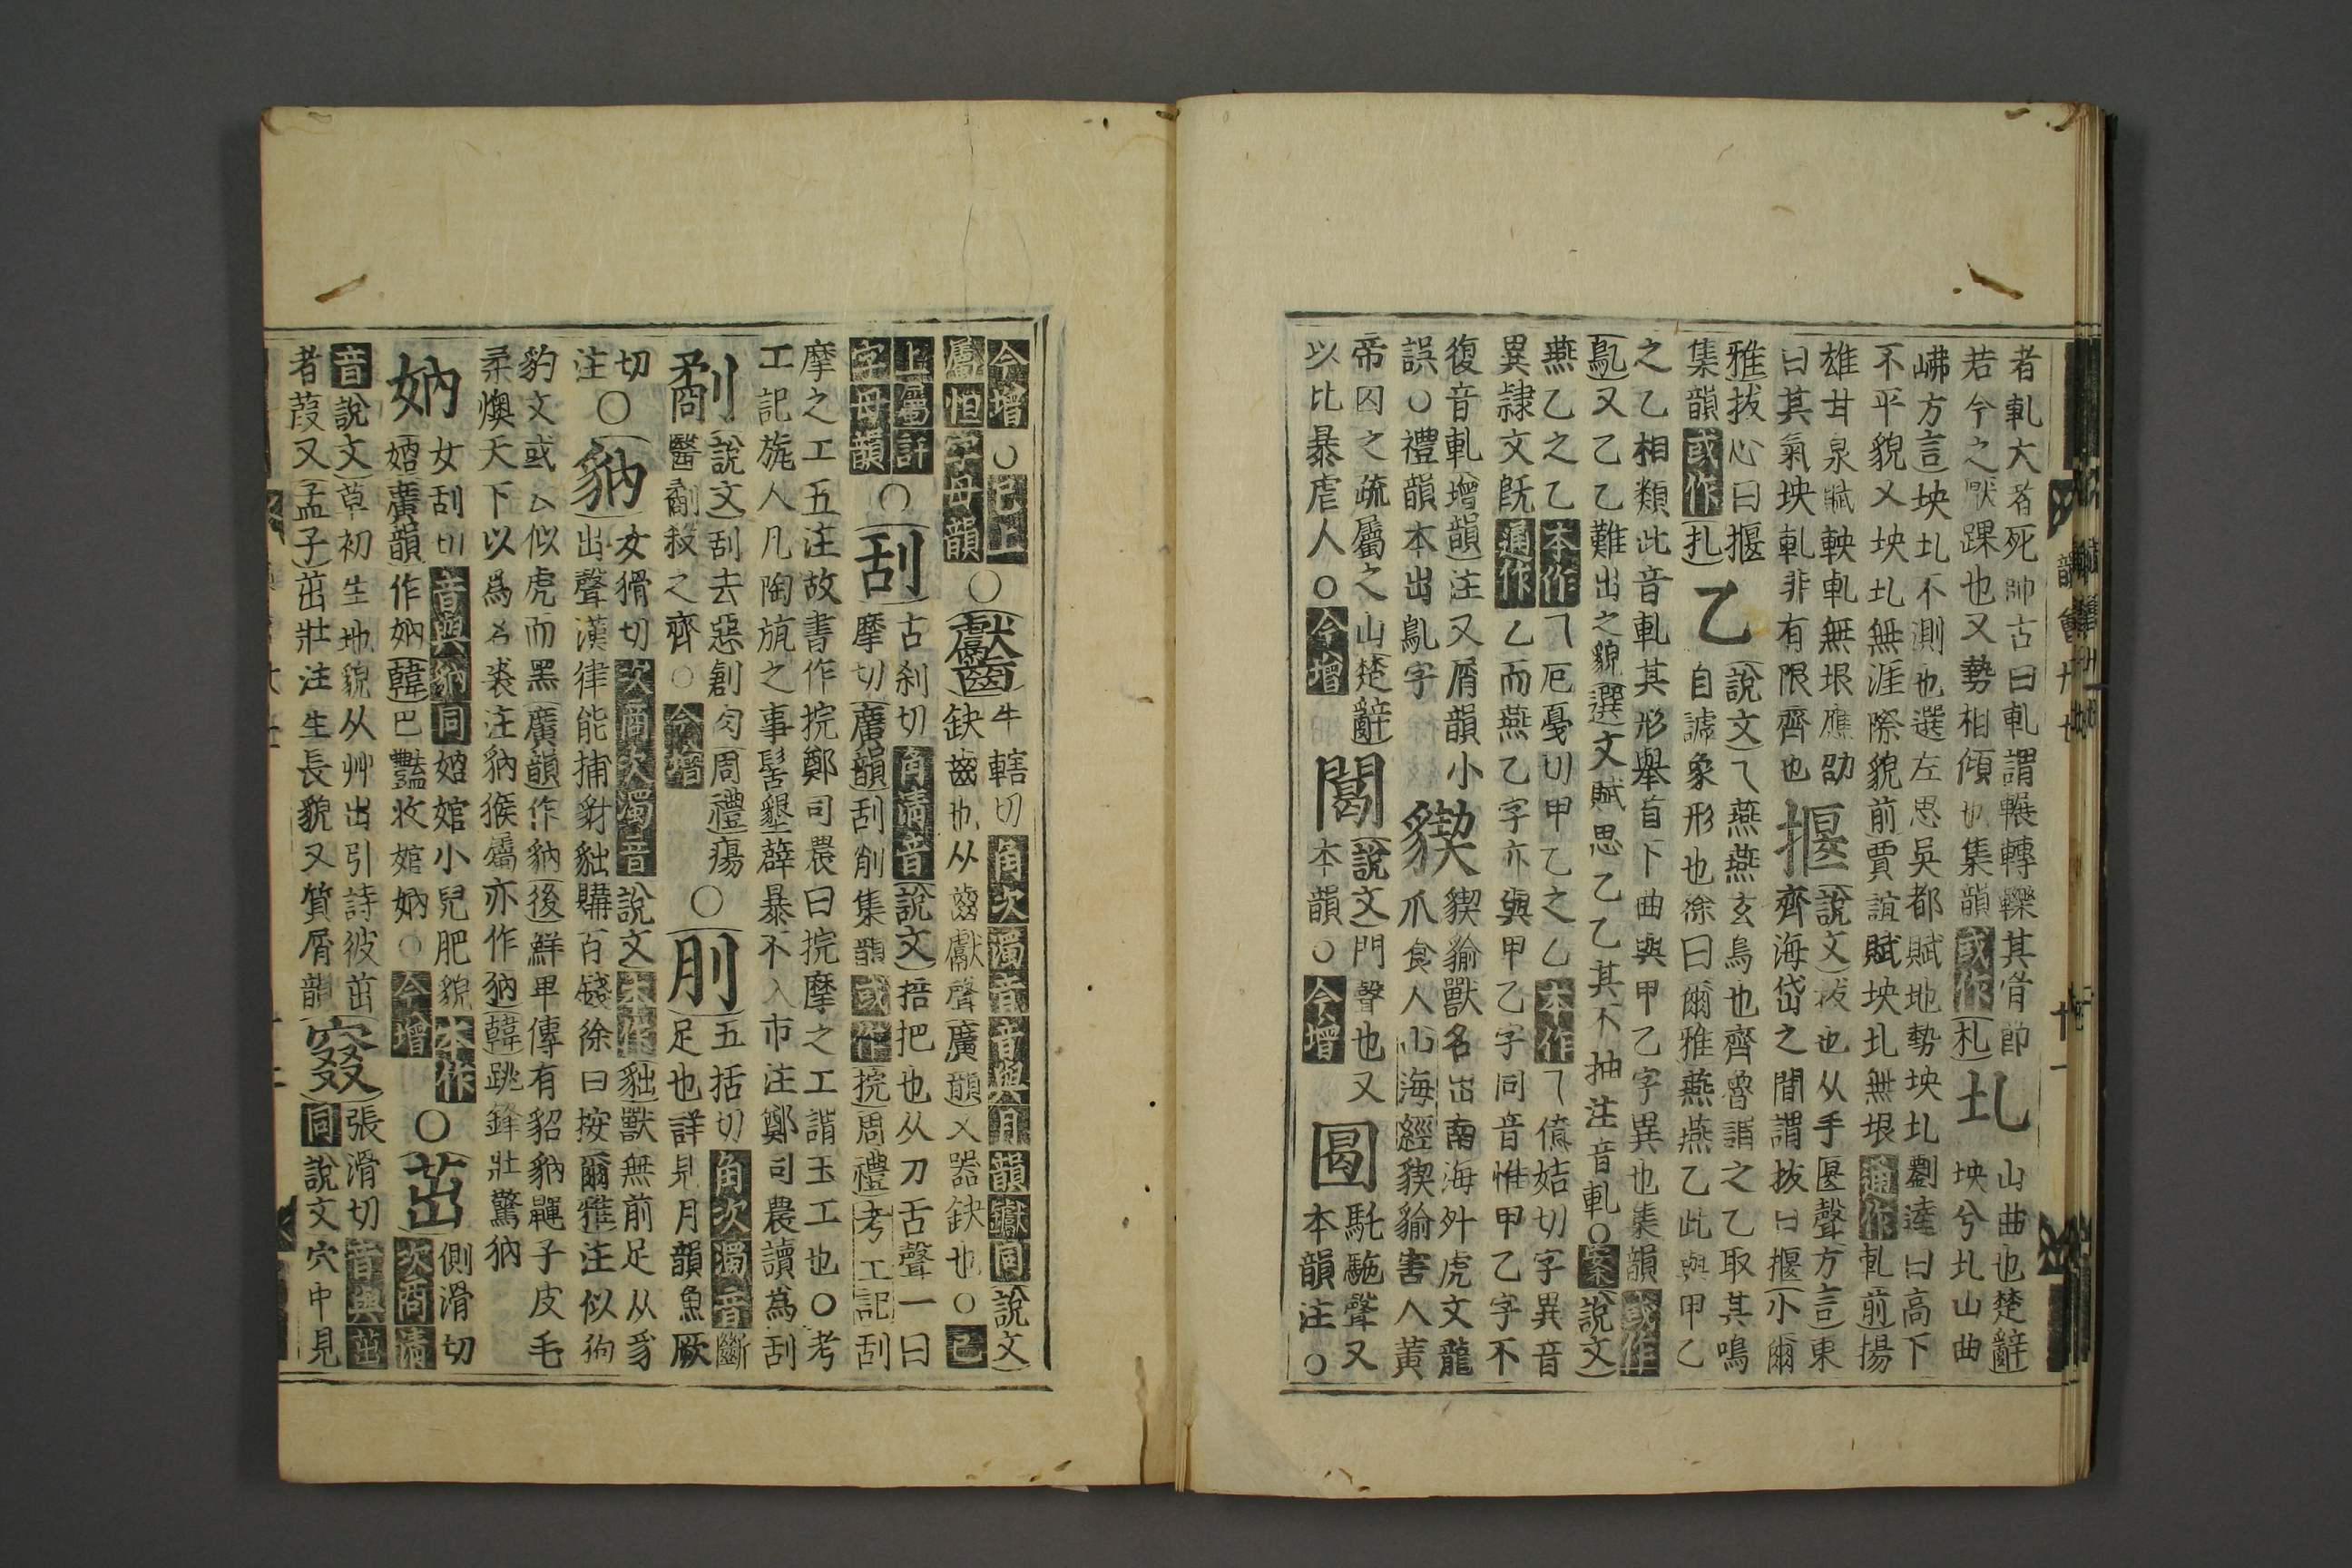 者軋大者死師古曰軋謂輾轉轢其骨節
若今之厭踝也又勢相傾也集韻或作札
圠
山曲也楚辭
坱兮圠山曲
岪方言坱圠不測也選左思吳都賦地勢坱圠劉逵曰高下
不平貌又坱圠無涯際貌前賈誼賦坱圠無垠通作軋前揚
雄甘泉賦軮軋無垠應劭
曰其氣坱軋非有限齊也
揠
說文拔也从手匽聲方言東
齊海岱之間謂拔曰揠小爾
雅拔心曰揠
集韻或作扎
乙
說文乁燕燕玄鳥也齊魯謂之乙取其鳴
自謼象形也徐曰爾雅燕燕乙此與甲乙
之乙相類此音軋其形舉首下曲與甲乙字異也集韻或作
鳦又乙乙難出之貌選文賦思乙乙其不抽注音軋○案說文
燕乙之乙本作乁厄戞切甲乙之乙本作乁億姞切字異音
異隷文旣通作乙而燕乙字亦與甲乙字同音惟甲乙字不
復音軋增韻注又屑韻小
誤○禮韻本出鳦字
猰
猰貐獸名出南海外虎文龍
爪食人山海經猰貐害人黃
帝囚之疏屬之山楚辭
以比暴虐人○今增
閼
說文門聲也又
本韻○今增
圔
駞駞聲又
本韻注○
今增○已上
屬怛字母韻
○
𪙨
牛轄切角次濁音音與月韻钀同說文
缺齒也从齒獻聲廣韻又器缺也○已
上屬訐
字母韻
○
刮
古刹切角清音說文掊把也从刀舌聲一曰
摩切廣韻刮削集韻或作捖周禮考工記刮
摩之工五注故書作捖鄭司農曰捖摩之工謂玉工也○考
工記旊人凡陶旊之事髺墾薜暴不入市注鄭司農讀爲刮
劀
說文刮去惡創肉周禮瘍
醫劀殺之齊○今增
○
刖
五括切角次濁音斷
足也詳見月韻魚厥
切
注
○
豽
女猾切次商次濁音說文本作貀獸無前足从豸
出聲漢律能捕豺貀購百錢徐曰按爾雅注似狗
豹文或云似虎而黑廣韻作豽後鮮卑傳有貂豽鼲子皮毛
柔㬉天下以爲名裘注豽猴屬亦作豽韓跳鋒壯驚豽
妠
女刮切音與豽同婠婠小兒肥貌本作
婠廣韻作妠韓巴豔收婠妠○今增
○
茁
側滑切
次商清
音說文草初生地貌从艸出引詩彼茁
者葭又孟子茁壯注生長貌又質屑韻
窡
張滑切音與茁
同說文穴中見